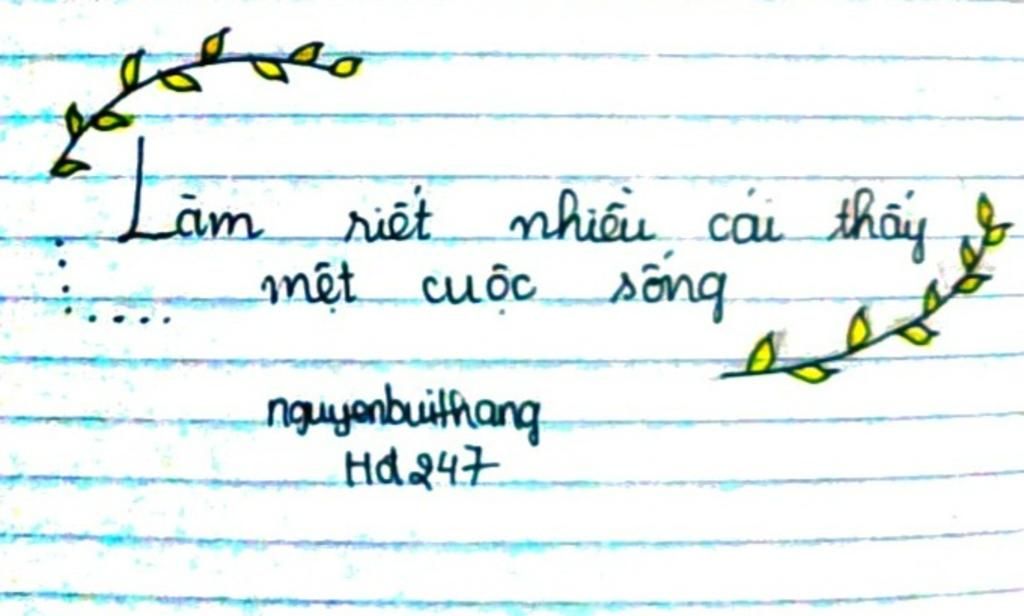 Làm riết nhiều cái thấy
mệt cuộc sống
nguyenbuithang
Hd247